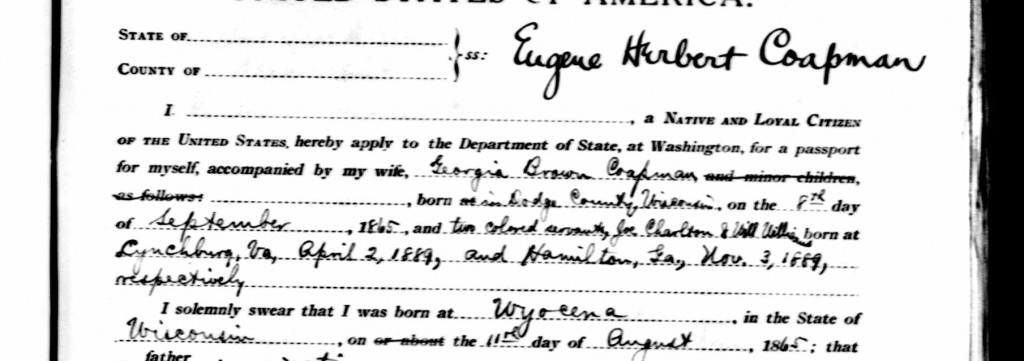 UNITED STATES OF AMERICA.
STATE OF
COUNTY OF
ss: Eugene Herbert Coapman
I , a NATIVE AND LOYAL CITIZEN
OF THE UNITED STATES, hereby apply to the Department of State, at Washington, for a passport
for myself, accompanied by my wife, Georgia Brown Coapman and minor children,
as follows: , born at in Dodge County, Wisconsin, on the 8th day
of September , 1865, and two colored servants, Joe Charlton & Will born at
Lynchburg, Va, April 2, 1889, and Hamilton, Ga, Nov. 3, 1889,
respectively
I solemnly swear that I was born at Wyocena , in the State of
Wisconsin , on or about the 11th day of August , 1865; that
father